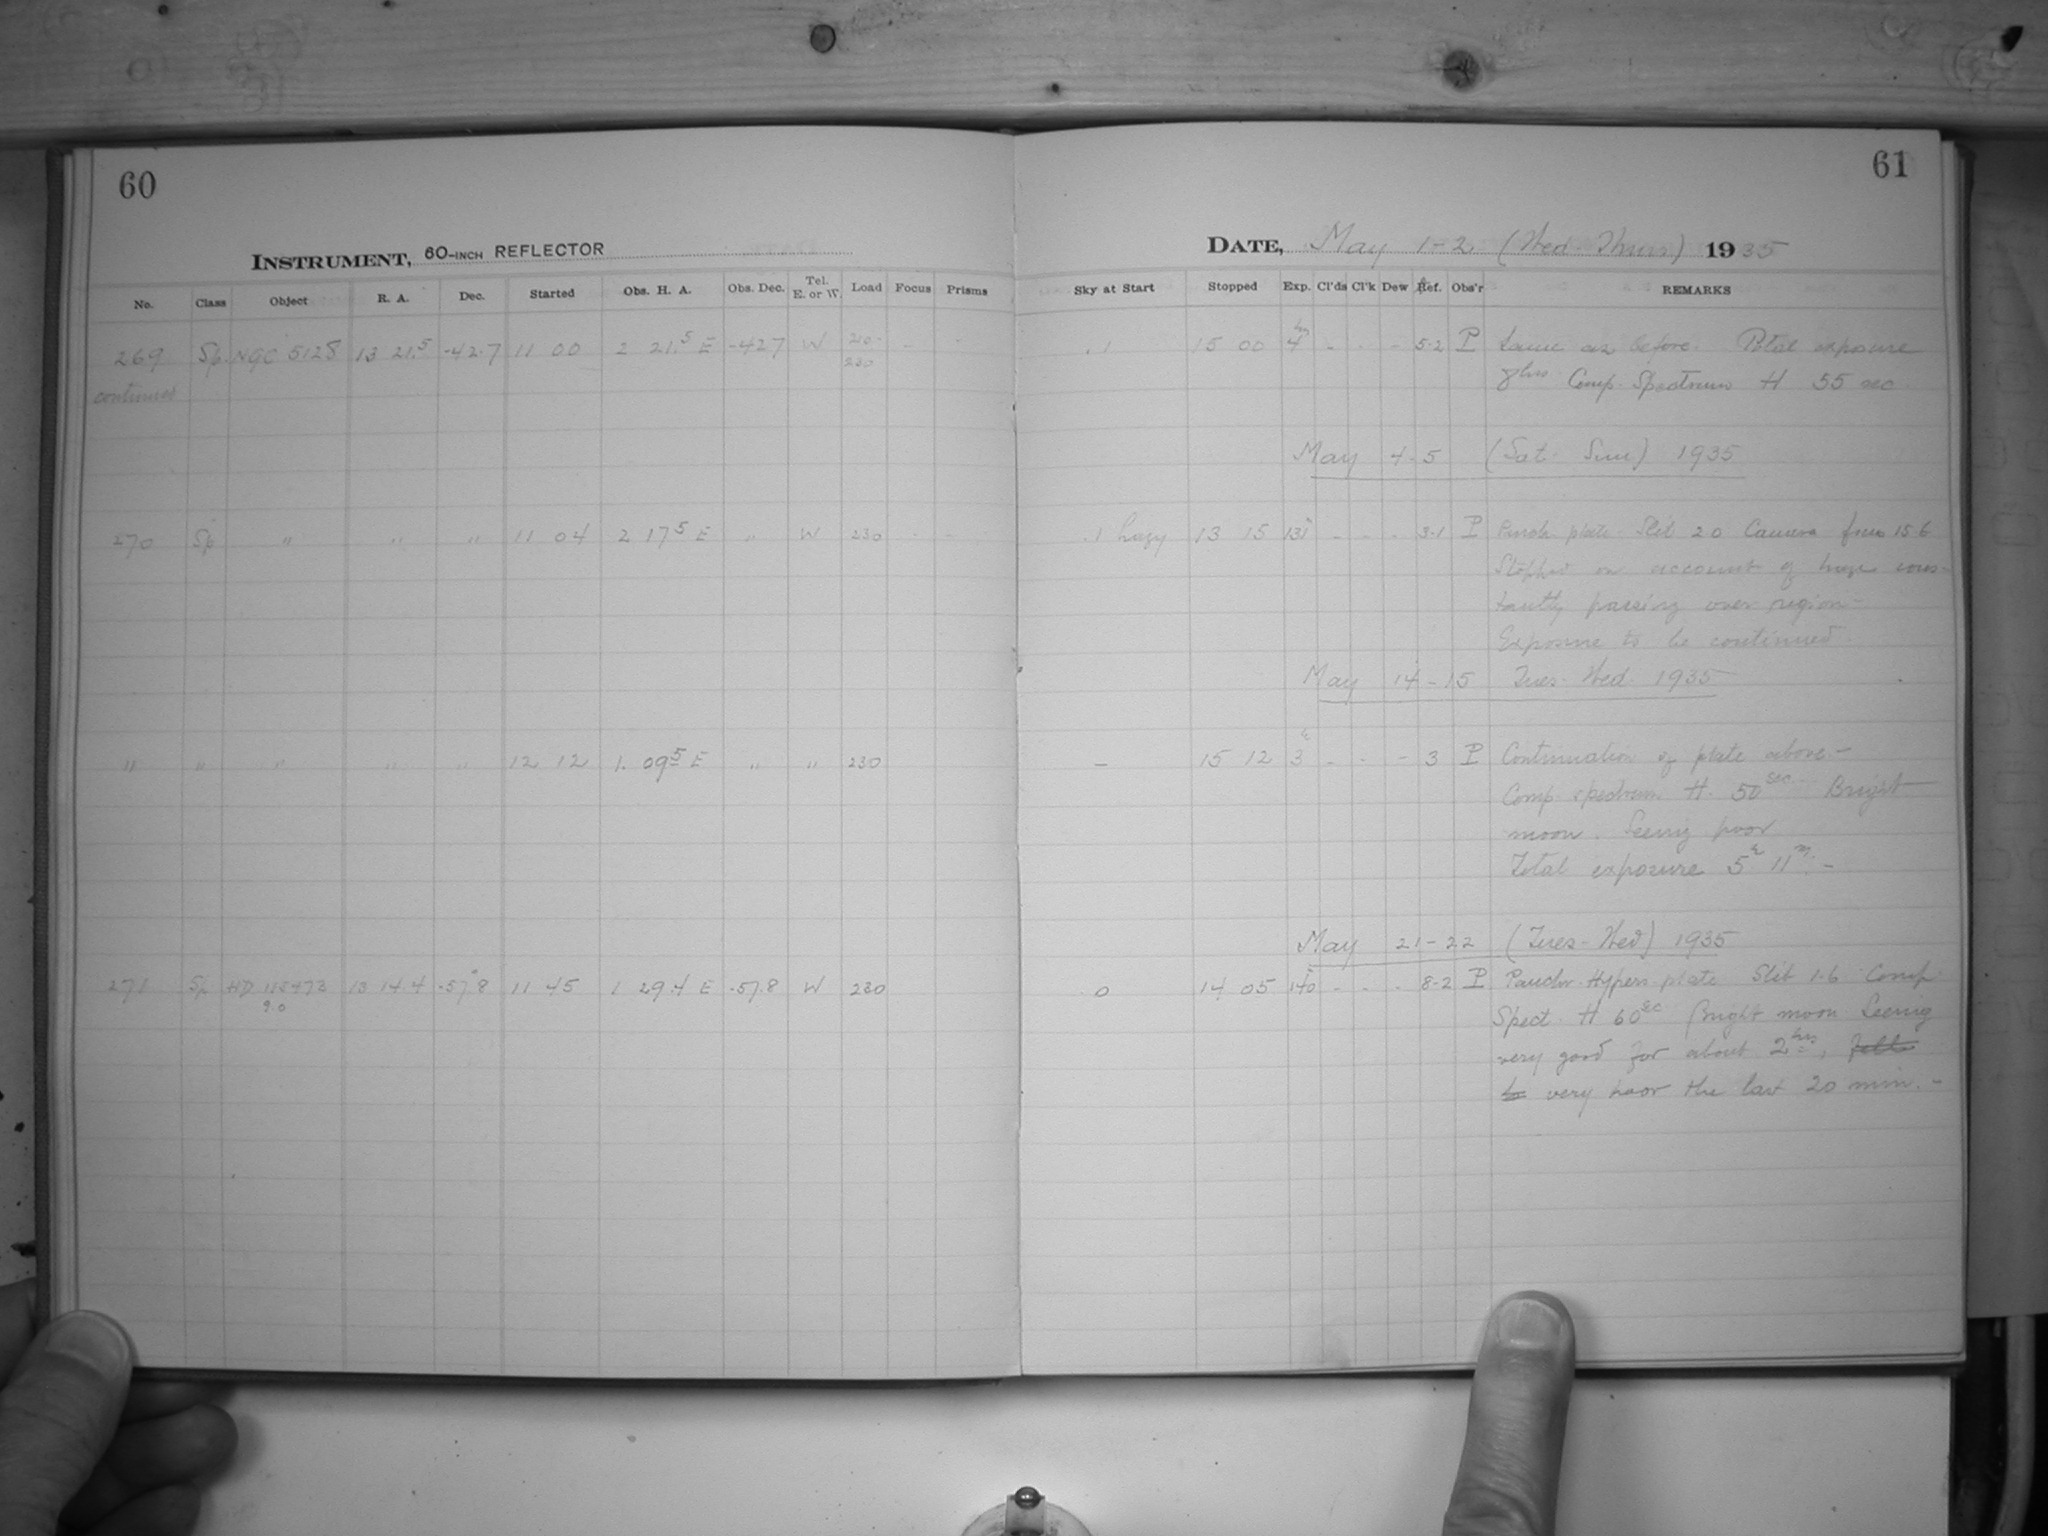 60
INSTRUMENT, 60-INCH REFLECTOR
No. Class Object R. A. Dec. Started Obs. H. A. Obs. Dec. Tel. E. or W. Load Focus Prisms
269 Sp. NGC 5128 13 21.5 -42.7 11 00 2 21.5 E -42.7 W 210-
continued 230
270 Sp " " " 11 04 2 17.5 E " W 230 - -
" " " " " 12 12 1. 09.5 E " " 230
271 Sp HD 115473 13 14.4 -57.8 11 45 1 29.4 E -57.8 W 230
9.0
61
DATE, May 1-2 (Wed-Thurs) 1935
Sky at Start Stopped Exp. Cl'ds Cl'k Dew Ref. Obs'r REMARKS
.1 15 00 4 hrs - - - 5-2 P Same as before. Total exposure
8 hrs Comp. Spectrum H 55 sec
May 4-5 (Sat-Sun) 1935
.1 hazy 13 15 131 - - - 3-1 P plate Slit 2.0 Camera focus 15.6
Stopped on account of haze cons-
tantly passing over region-
Exposure to be continued.
May 14-15 Tues-Wed. 1935
- 15 12 3h - - - 3 P Continuation of plate above-
Comp. spectrum H. 50 sec. Bright
moon. Seeing poor
Total exposure 5h 11m. -
May 21-22 (Tues-Wed) 1935
0 14 05 140 - - - 8-2 P Hypers plate Slit 1.6 Comp
Spect. H 60 sec Bright moon Seeing
very good for about 2 hrs,
very poor the last 20 min. -